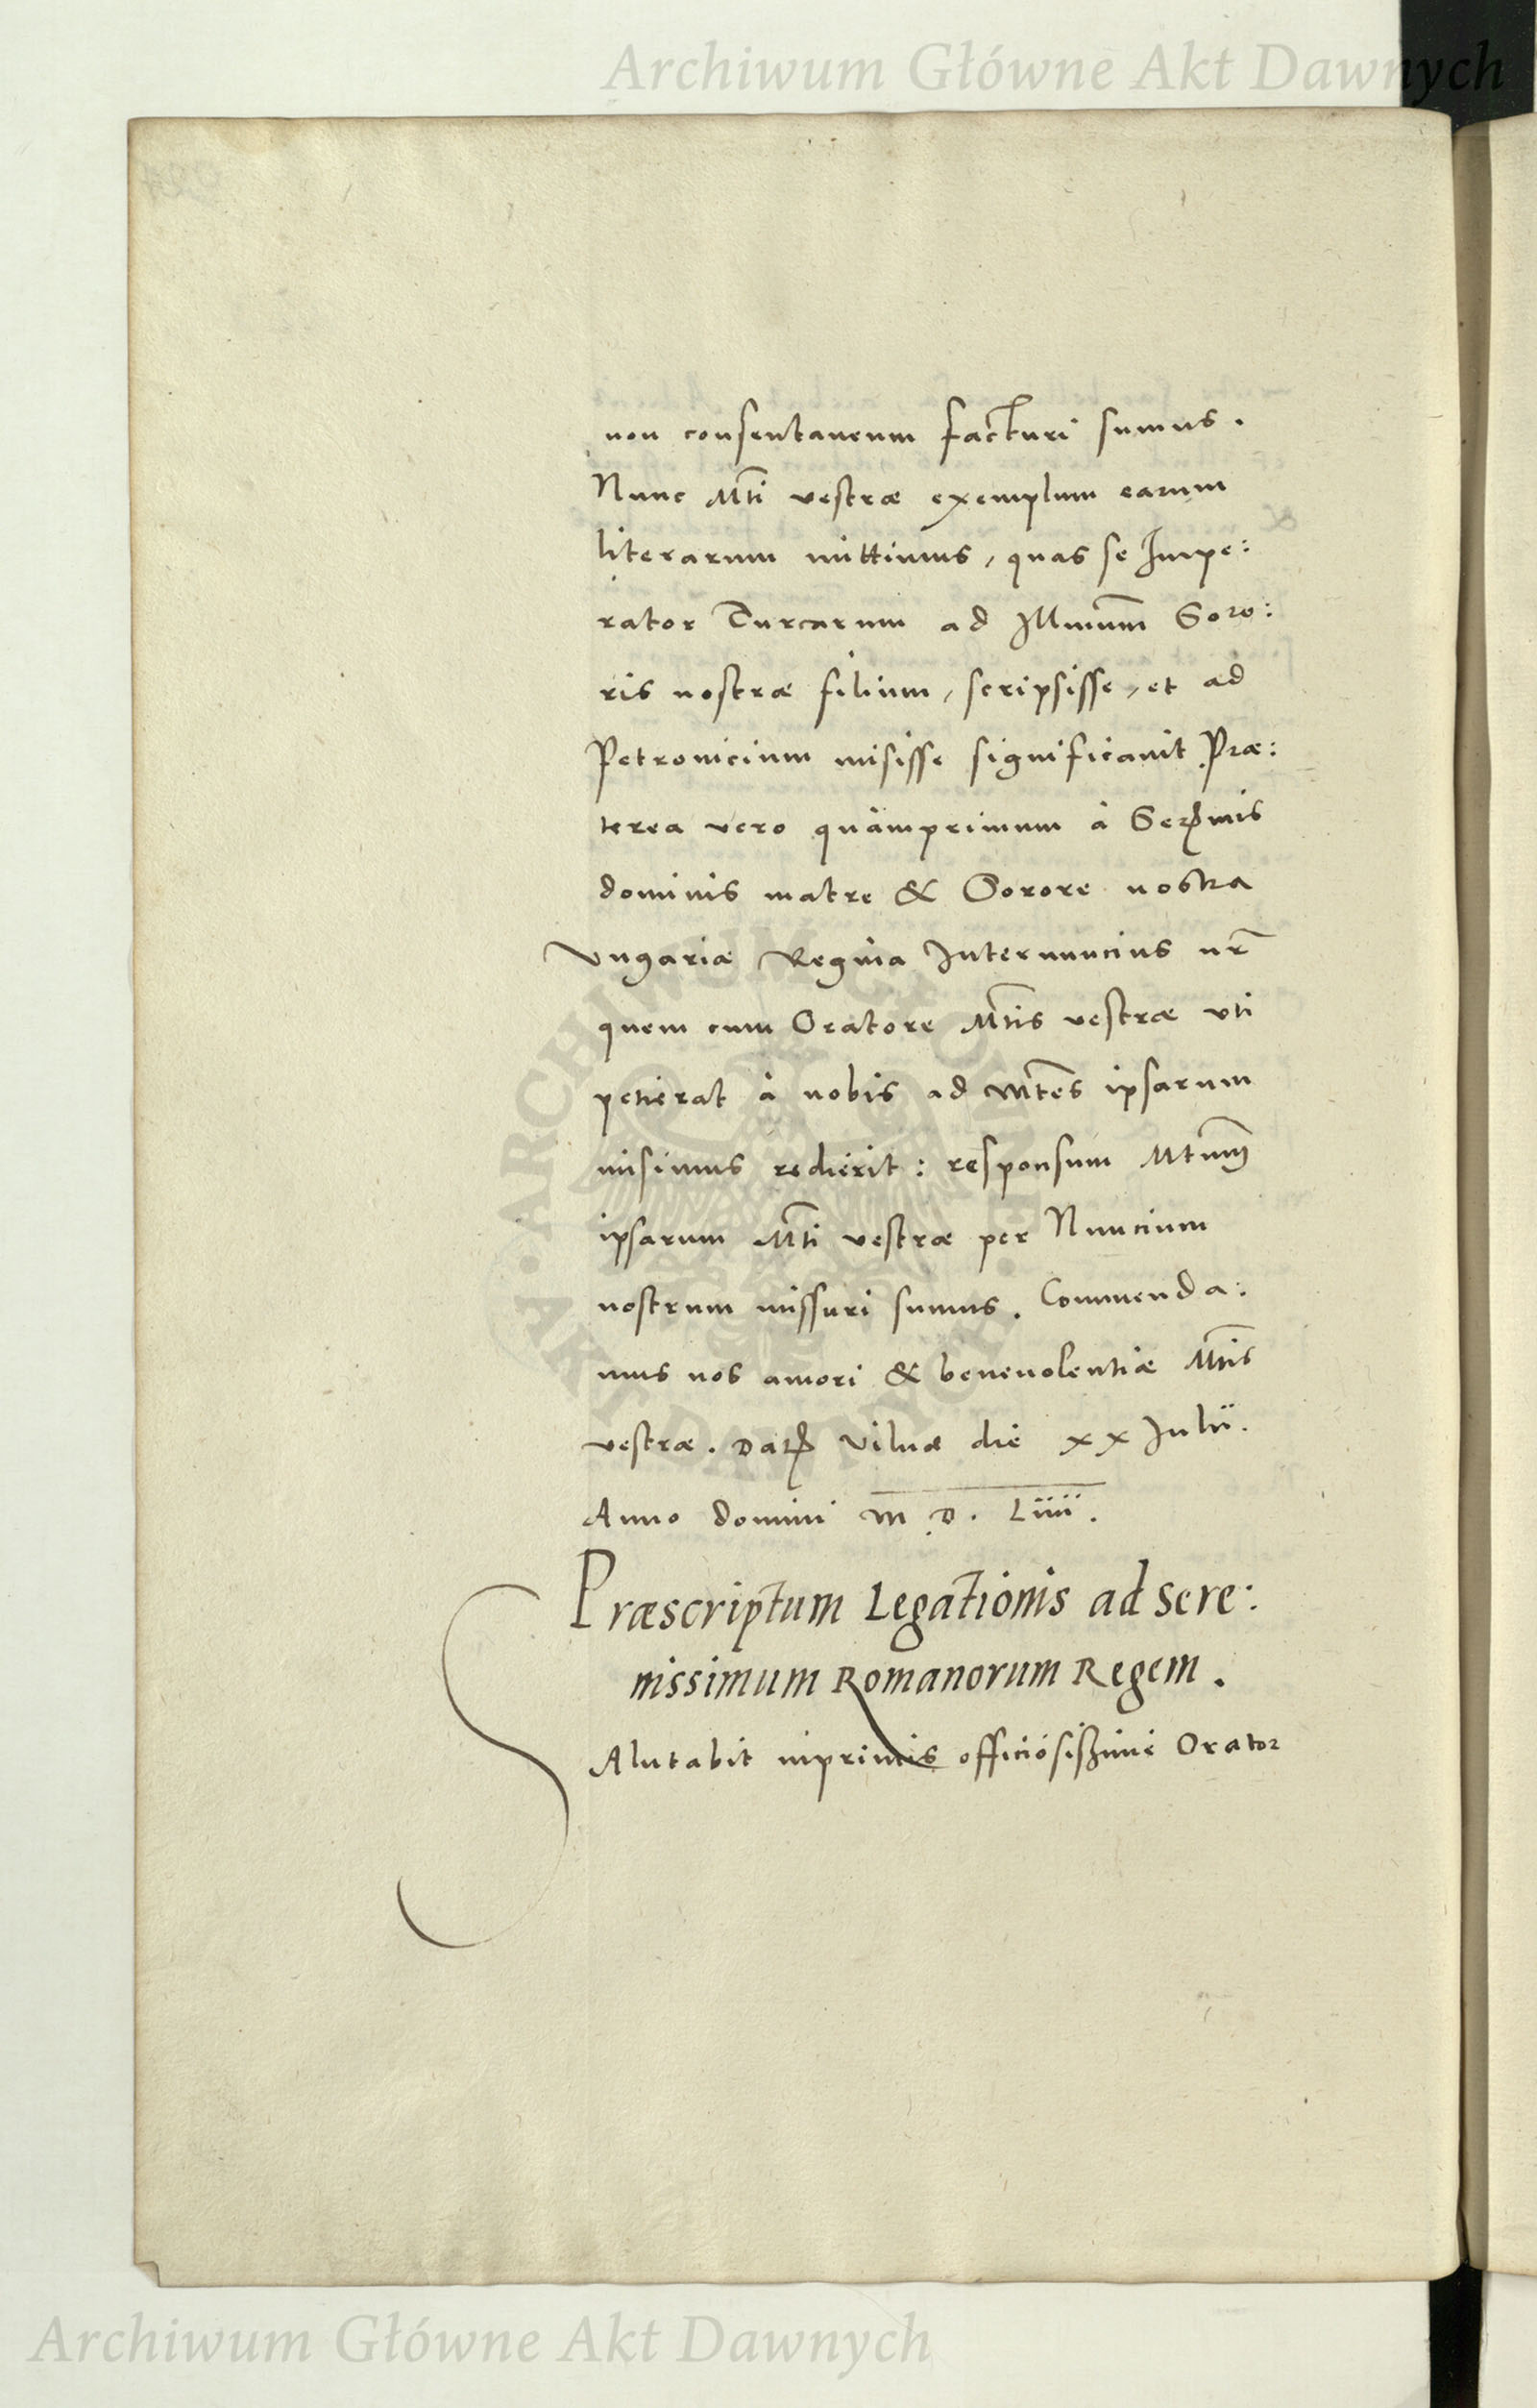 Archiwum Główne Akt Dawnych
non consentaneum facturi sumus.
Nunc Mti vestræ exemplum earum
literarum mittimus, quas se Impe:
rator Turcarum ad Illmum Soro:
ris nostræ filium, scripsisse, et ad
Petrovicium misisse significavit. Præ:
terea vero quàmprimum à Sermis
dominis matre & Sorore nostra
Vngariæ Regina Internuncius nr
quem cum Oratore Mtis vestræ vti
petierat à nobis ad Mtes ipsarum
misimus redierit: responsum Mtum
ipsarum Mti vestræ per Nuncium
nostrum missuri sumus. Commenda:
mus nos amori & benevolentiæ Mtis
vestræ. Dat Vilnæ die xx Julii.
Anno domini M.D. Liiii.
Præscriptum Legationis ad Sere:
nissimum Romanorum Regem.
SAlutabit inprimis officiosissime Orator
ARCHIWUM GŁÓWNE AKT DAWNYCH
Archiwum Główne Akt Dawnych